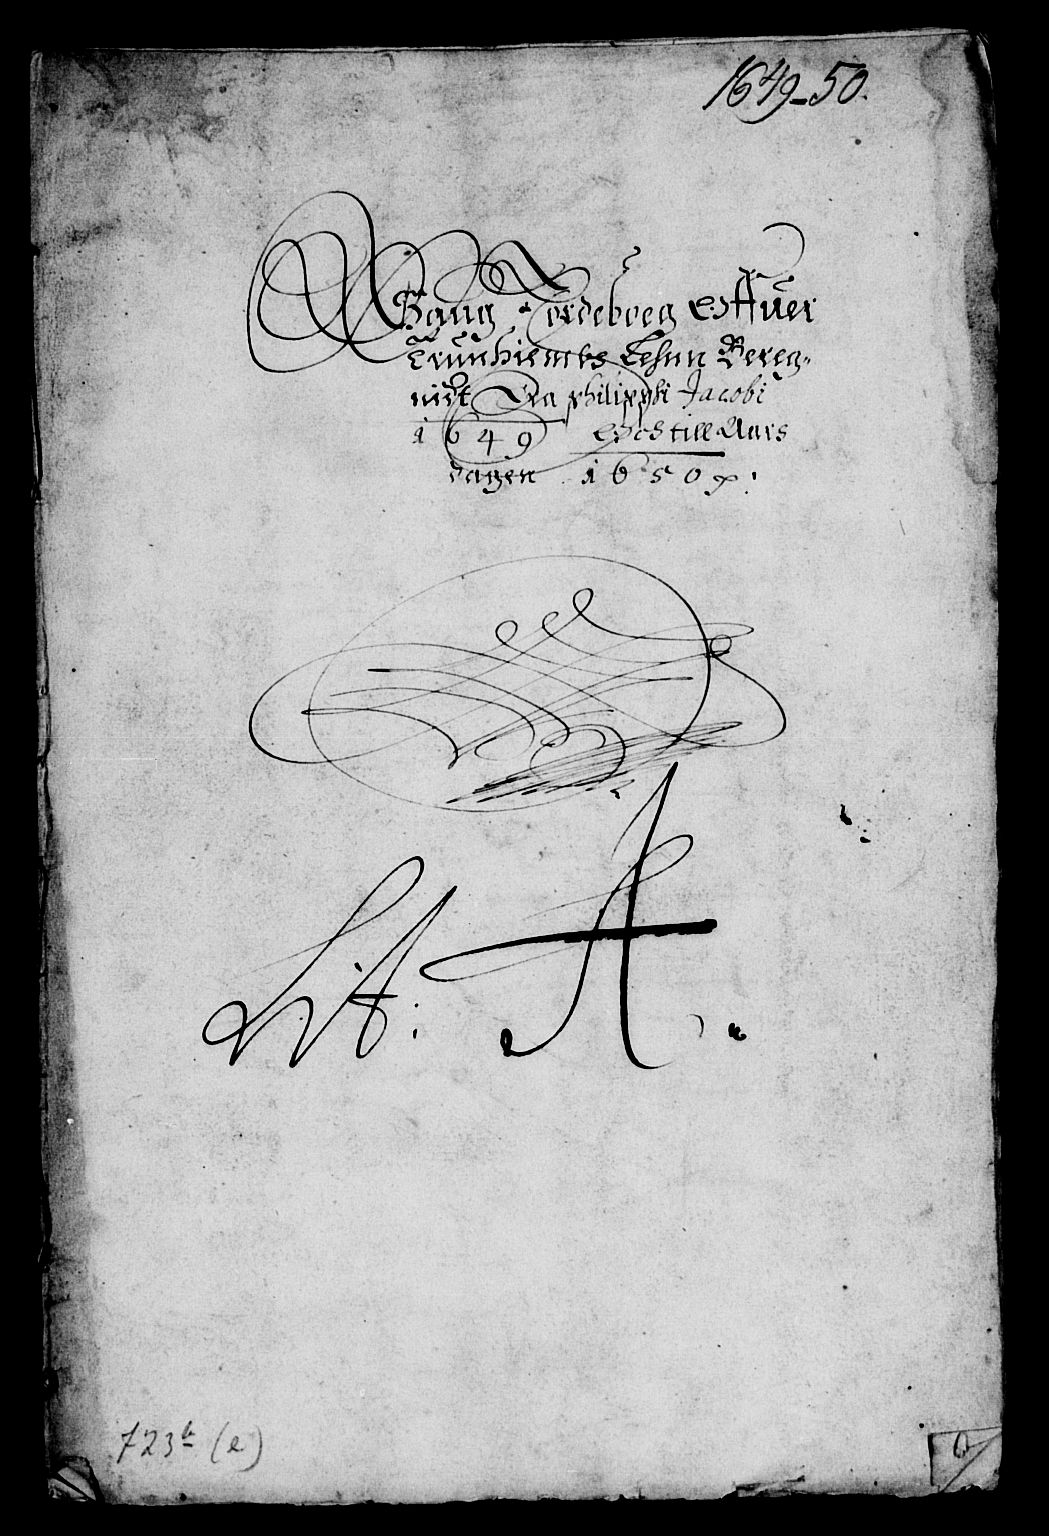 1649-50.
Gaug Jordeboeg Offuer
Trundhiembs Lehnn Bereg-
nidt Fra philippi Jacobi
1649 Och till Aars
dagen 1650
Lit: A.
723b (e)